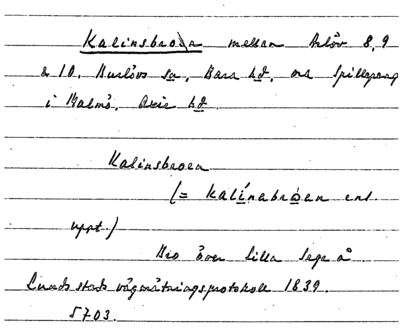 Kalinsbroa mellan Arlöv 8, 9
& 10, Burlövs sn, Bara hd, och Spillepeng
i Malmö, Oxie hd.
Kalinsbroen
(= Kalínabróen enl.
uppt.)
Bro över Lilla Sege å
Lunds stads vägmätningsprotokoll 1839.
5703.